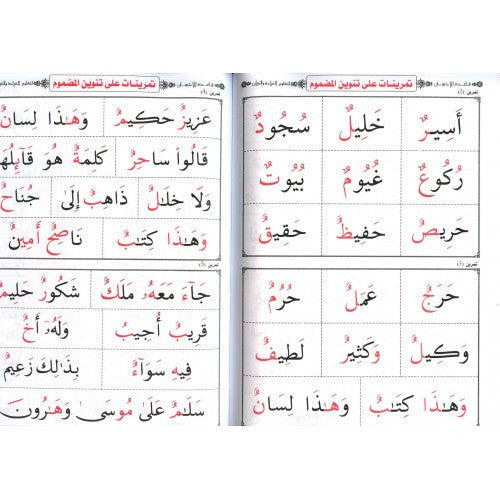 تمرينات على تنوين المضموم
تمرين
أَسِيرٌ خَلِيلٌ سُجُودٌ
رُكُوعٌ غُيُومٌ بُيُوتٌ
حَرِيصٌ حَفِيظٌ حَقِيقٌ
تمرين
حَرَجٌ عَمَلٌ حُرُمٌ
وَكِيلٌ وَكَثِيرٌ لَطِيفٌ
وَهَٰذَا كِتَٰبٌ وَهَٰذَا لِسَانٌ
تمرينات على تنوين المضموم
تمرين
عَزِيزٌ حَكِيمٌ وَهَٰذَا لِسَانٌ
قَالُوا۟ سَاحِرٌ كَلِمَةٌ هُوَ قَآئِلُهَا
وَلَا خِلَٰلٌ ذَاهِبٌ إِلَىٰ جُنَاحٌ
وَهَٰذَا كِتَٰبٌ نَاصِحٌ أَمِينٌ
تمرين
جَآءَ مَعَهُۥ مَلَكٌ شَكُورٌ حَلِيمٌ
قَرِيبٌ أُجِيبُ وَلَهُۥٓ أَخٌ
فِيهِ سَوَآءٌ بِذَٰلِكَ زَعِيمٌ
سَلَٰمٌ عَلَىٰ مُوسَىٰ وَهَٰرُونَ